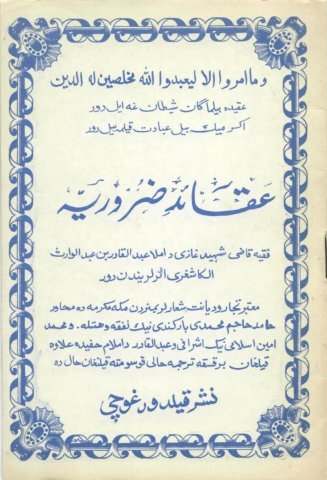 وما امروا الا ليعبدوا الله مخلصين له الدين
عقيده بيلماگان شيطان غه ايل دور
اگر مينك ييل عبادت قيلمه ييل دور
عقائد ضروريه
فقيه قاضى شهيد غازى داملا عبدالقادر بن عبدالوارث
الكاشغرى الزلربندن دور
معتبر تجار وديانت شعارلريمزدن مكه مكرمه ده مجاور
حامد حاجيم محمدى ياركندى نينك نفقه وهمتله. ومحمد
امين اسلامى نيك اشرافى وعبدالقادر داملام حفيده علاوه
قيلغان بر قسقه ترجمه حالى قوسومته قيلغان حال ده
نشر قيلدورغوچى